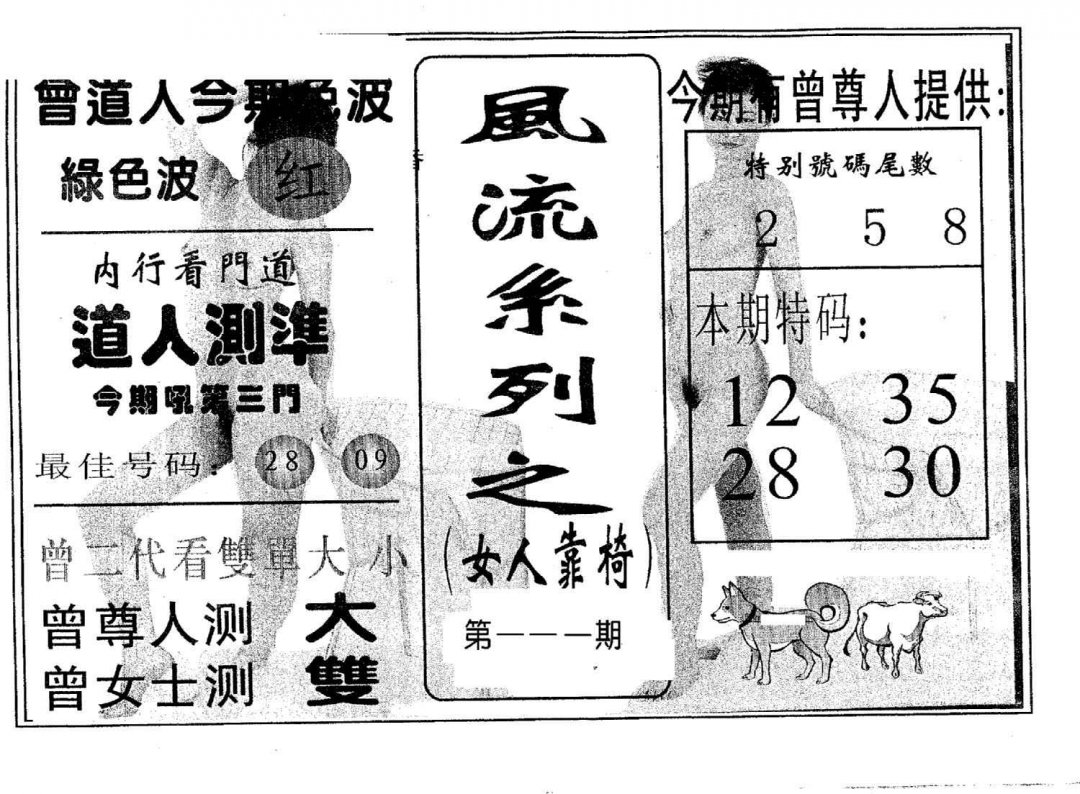 曾道人今期色波
綠色波 红
内行看門道
道人測準
今期吼第三門
最佳号码: 28 09
曾二代看雙單大小
曾尊人测 大
曾女士测 雙
風流系列之
(女人靠椅)
第一一一期
今期有曾尊人提供:
特别號碼尾數
2 5 8
本期特码:
12 35
28 30